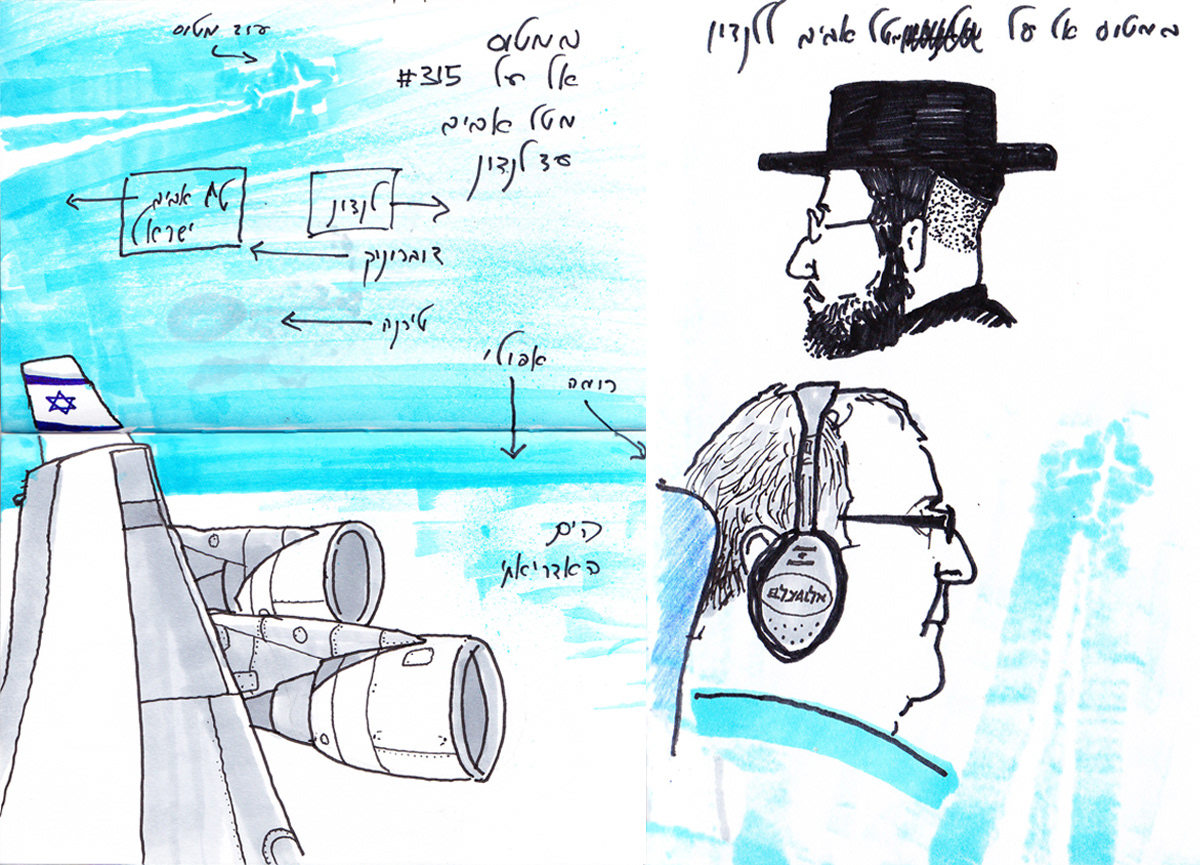 עוד מטוס
במטוס
אל על #315
מתל אביב
עד לנדון
תל אביב
ישראל
לנדון
דוברובניק
טירנה
אפולי
רומה
הים
האדריאתי
במטוס אל על מתל אביב ללנדון